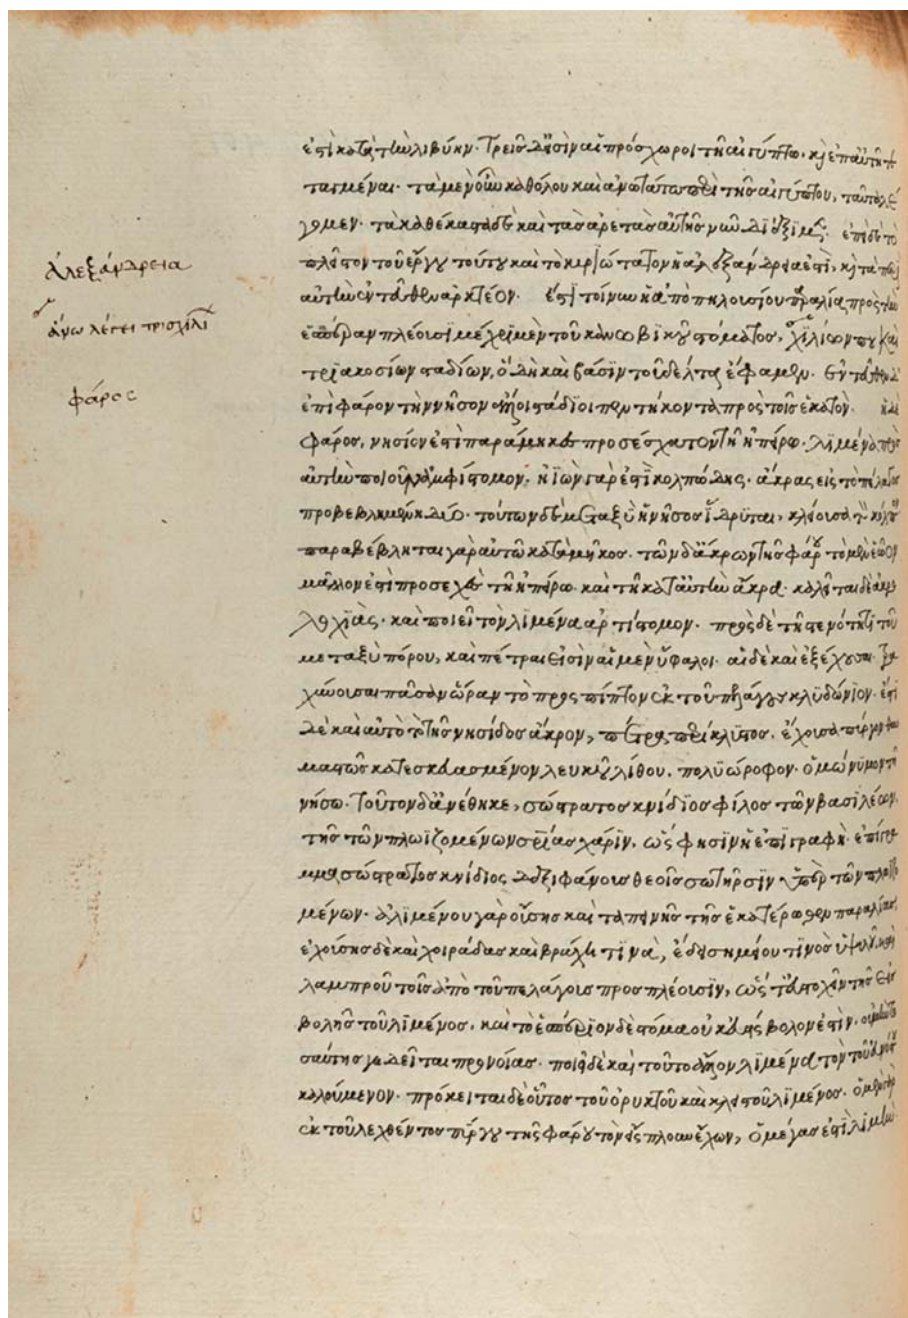 ἐστὶ κατὰ τὴν λιβύην. τρεῖς δ' εἰσὶν αἱ πρόσχωροι τῆ αἰγύπτω. καὶ ἐπ' αὐτῆ τε
ταγμέναι. τὰ μὲν οὖν καθόλου καὶ ἀνωτάτω περὶ τῆς αἰγύπτου, ταῦτα λέ
γομεν. τὰ καθέκαστα δὲ καὶ τὰς ἀρετὰς αὐτῆς νῦν διέξιμεν. ἐπεὶ δὲ τὸ
πλεῖστον τοῦ ἔργου τούτου καὶ τὸ κυριώτατον ἡ ἀλεξάνδρεια ἐστὶ, καὶ τὰ περὶ
ἀλεξάνδρεια
αὐτὴν ἐνταῦθεν ἀρκτέον. ἔστι τοίνυν ἡ ἀπὸ πηλουσίου παραλία πρὸς τὴν
ἄνω λέγει τρισχιλί
ἑσπέραν πλέουσι μέχρι μὲν τοῦ κανωβικοῦ στόματος, χιλίων που καὶ
τριακοσίων σταδίων, ὃ δὴ καὶ βάσιν τοῦ δέλτα ἔφαμεν. ἐντεῦθεν δ'
φάρος
ἐπὶ φάρον τὴν νῆσον ἄλλοι στάδιοι πεντήκοντα πρὸς τοῖς ἑκατόν. ἡ δὲ
φάρος, νησίον ἐστὶ παράμηκες προσεχέστατον τῆ ἠπείρω. λιμένα πρὸς
αὐτὴν ποιοῦν ἀμφίστομον. ἠϊὼν γάρ ἐστι κολπώδης. ἄκρας εἰς τὸ πέλαγος
προβεβλημένη δύο. τούτων δὲ μεταξὺ ἡ νῆσος ἵδρυται, κλείουσα τὸν κόλπον
παραβέβληται γὰρ αὐτῶ κατὰ μῆκος. τῶν δ' ἄκρων τῆς φάρου τὸ μὲν ἑῶον
μᾶλλον ἐστὶ προσεχὲς τῆ ἠπείρω. καὶ τῆ κατ' αὐτὴν ἄκρα. καλεῖται δὲ ἄκρα
λοχιὰς. καὶ ποιεῖ τὸν λιμένα ἀρτίστομον. πρὸς δὲ τῆ στενότητι τοῦ
μεταξὺ πόρου, καὶ πέτραι εἰσὶν αἱ μὲν ὕφαλοι. αἱ δὲ καὶ ἐξέχουσαι. τρα
χύνουσαι πᾶσαν ὥραν τὸ προσπίπτον ἐκ τοῦ πελάγους κλυδώνιον. ἔστι
δὲ καὶ αὐτὸ τὸ τῆς νησίδος ἄκρον, πέτρα περίκλυστος. ἔχουσα πύργον θαυ
μαστῶς κατεσκευασμένον λευκοῦ λίθου. πολυώροφον. ὁμώνυμον τῆ
νήσω. τοῦτον δ' ἀνέθηκε, σώστρατος κνίδιος φίλος τῶν βασιλέων.
τῆς τῶν πλωϊζομένων σωτηρίας χάριν, ὥς φησιν ἡ ἐπιγραφὴ. ἐπίγρα
μμα σώστρατος κνίδιος δεξιφάνους θεοῖς σωτῆρσιν ὑπὲρ τῶν πλωϊζο
μένων. ἀλιμένου γὰρ οὔσης καὶ ταπεινῆς τῆς ἑκατέρωθεν παραλίας
ἐχούσης δὲ καὶ χοιράδας καὶ βράχη τινὰ, ἔδει σημείου τινὸς ὑψηλοῦ καὶ
λαμπροῦ τοῖς ἀπὸ τοῦ πελάγους προσπλέουσιν, ὥστ' εὐστοχεῖν τῆς εἰσ
βολῆς τοῦ λιμένος. καὶ τὸ ἑσπέριον δὲ στόμα οὐκ εὐείσβολον ἐστὶν. οὐ μὴν το
σαύτης γε δεῖται προνοίας. ποιεῖ δὲ καὶ τοῦτο ἄλλον λιμένα τὸν τοῦ εὐνόστου
καλούμενον. πρόκειται δὲ οὗτος τοῦ ὀρυκτοῦ καὶ κλειστοῦ λιμένος. ὁ μὲν γὰρ
ἐκ τοῦ λεχθέντος πύργου τῆς φάρου τὸν εἴσπλουν ἔχων, ὁ μέγας ἐστὶ λιμὴν